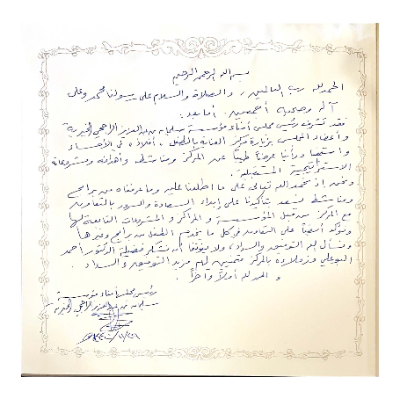 بسم الله الرحمن الرحيم
الحمد لله رب العالمين، والصلاة والسلام على رسولنا محمد وعلى
آله وصحبه أجمعين. أما بعد:
فقد تشرفت رئيس مجلس أمناء مؤسسة سليمان بن عبدالعزيز الراجحي الخيرية
وأعضاء المجلس بزيارة مركز العناية بالطفل في الأحساء
واستمعنا ورأينا عرضاً طيباً عن المركز ومناشطه وأهدافه ومشروعاته
الاستراتيجية المستقبلية.
ونحن إذ نحمد الله تعالى على ما اطلعنا عليه وما عرفناه من برامج
ومناشط نسعد بتأكيدنا على إبداء السعادة والسرور بالتعاون
مع المركز من قبل المؤسسة والمراكز والمشروعات التابعة لها
ونؤكد أيضاً على التعاون في كل ما يخدم الطفل من برامج وغيرها
ونسأل الله التوفيق والسداد، ولا يفوتنا أن نشكر فضيلة الدكتور أحمد
البوعلي وزملاءه بالمركز متمنين لهم مزيد التوفيق والسداد.
والحمد لله أولاً وآخراً.
رئيس مجلس أمناء مؤسسة
سليمان بن عبدالعزيز الراجحي الخيرية